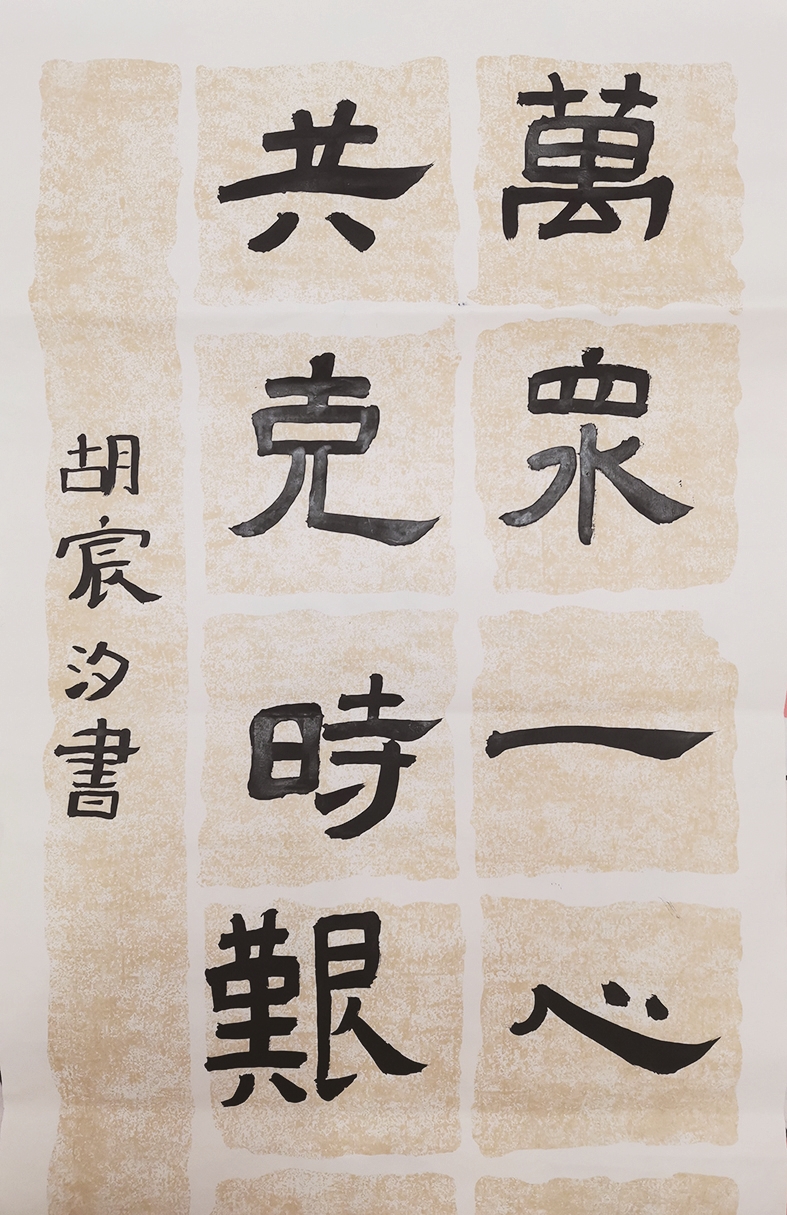 萬眾一心
共克時艱
胡宸汐書